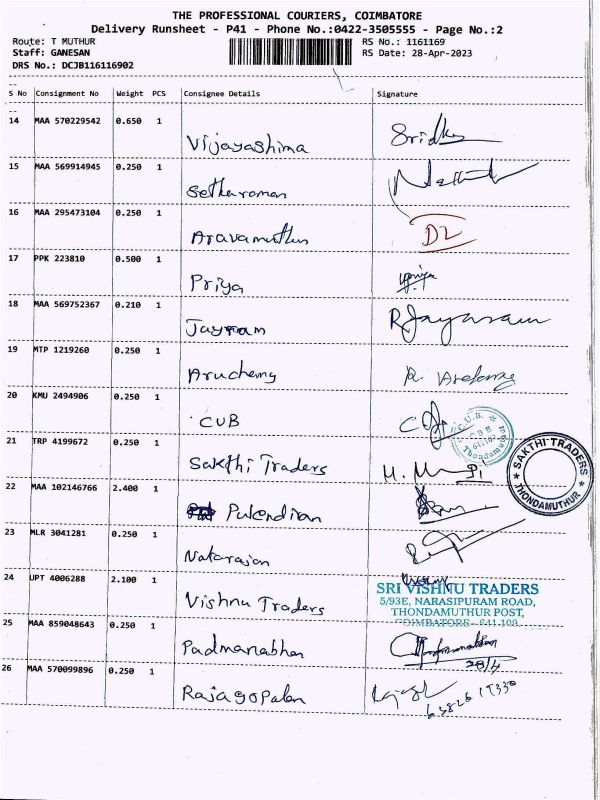 THE PROFESSIONAL COURIERS, COIMBATORE
Delivery Runsheet - P41 - Phone No.:0422-3505555 - Page No.:2
Route: T MUTHUR RS No.: 1161169
Staff: GANESAN RS Date: 28-Apr-2023
DRS No.: DCJB116116902
S No Consignment No Weight PCS Consignee Details Signature
14 MAA 570229542 0.650 1 Vijayashima
15 MAA 569914945 0.250 1 Setharaman
16 MAA 295473104 0.250 1 Aravamuthun D2
17 PPK 223810 0.500 1 Priya
18 MAA 569752367 0.210 1 Jayram R Jayaram
19 MTP 1219260 0.250 1 Aruchamy
20 KMU 2494906 0.250 1 CUB
21 TRP 4199672 0.250 1 Sakthi Traders
SAKTHI TRADERS
THONDAMUTHUR
22 MAA 102146766 2.400 1 Pukendiran
23 MLR 3041281 0.250 1 Natarajan
24 UPT 4006288 2.100 1 Vishnu Traders
SRI VISHNU TRADERS
5/93E, NARASIPURAM ROAD,
THONDAMUTHUR POST,
COIMBATORE - 641 109
25 MAA 859048643 0.250 1 Padmanabhan
28/4
26 MAA 570099896 0.250 1 Rajagopalan